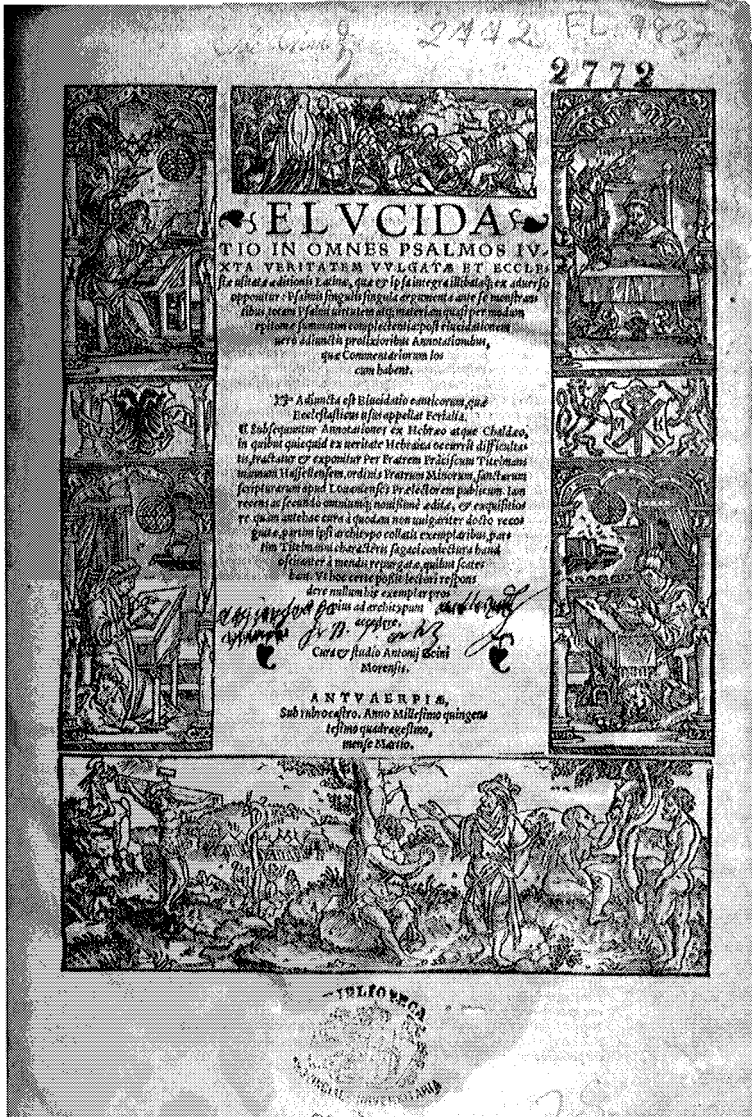 2772 FL. 9837
2772
ELVCIDA
TIO IN OMNES PSALMOS IV-
XTA VERITATEM VVLGATÆ ET ECCLE-
siæ usitatæ æditionis Latinæ, quæ & ipsa integra illibataq; ex aduerso
opponitur: Psalmis singulis singula argumenta ante se monstran
tibus totam Psalmi uirtutem atq; materiam quasi per modum
epitomæ summatim complectentia: post elucidationem
uero adiunctis prolixioribus Annotationibus,
quæ Commentariorum lo
cum habent.
Adiuncta est Elucidatio canticorum, quæ
Ecclesiasticus usus appellat Ferialia.
Et Subsequuntur Annotationes ex Hebræo atque Chaldæo,
in quibus quicquid ex ueritate Hebraica occurrit difficulta
tis, tractatur & exponitur Per Fratrem Frāciscum Titelmans
Hassellensem, ordinis Fratrum Minorum, sanctarum
scripturarum apud Louanienses Prælectorem publicum. Iam
recens ac secundo omniumq; nouissime ædita, & exquisitio
re quam antehac cura à quodam non uulgariter docto recog
nitæ, partim ipsi archetypo collatis exemplaribus, par
tim Titelmanni characteris sagaci coniectura haud
oscitanter à mendis repurgatæ, quibus scate
bant. Vt hoc certe possit lectori respons
dere nullum his exemplar pro
pius ad archetypum
accedere.
Cura & studio Antonij
Morensis.
ANTVAERPIÆ,
Sub intro castro. Anno Millesimo quingen
tesimo quadragesimo,
mense Martio.
M K
BIBLIOTECA
UNIVERSITARIA